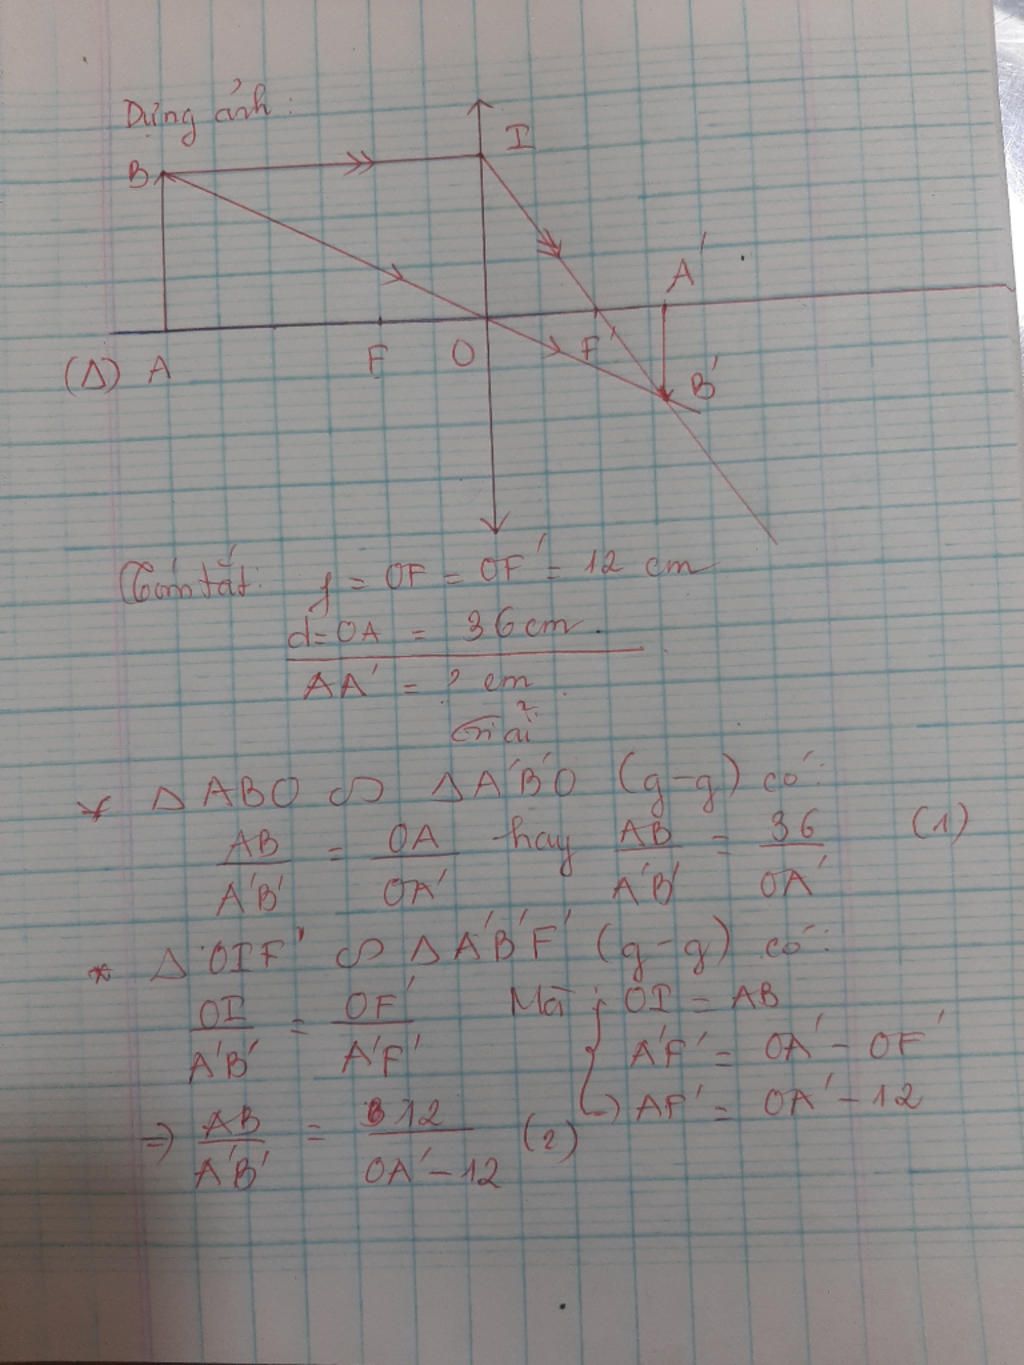 Dựng ảnh:
I
B
A'
(Δ) A F O F' B'
Tóm tắt: f = OF = OF' = 12 cm
d = OA = 36 cm.
AA' = ? cm
Giải
* Δ ABO ∽ Δ A'B'O (g-g) có:
AB/A'B' = OA/OA' hay AB/A'B' = 36/OA' (1)
* Δ OIF' ∽ Δ A'B'F' (g-g) có:
OI/A'B' = OF'/A'F' Mà { OI = AB
A'F' = OA' - OF'
↪ AF' = OA' - 12
⇒ AB/A'B' = 12/OA' - 12 (2)